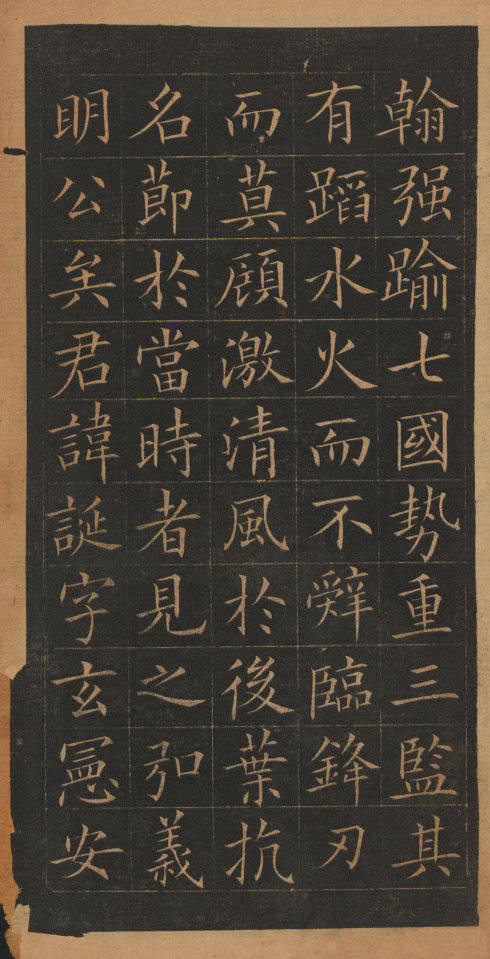 翰强踰七國勢重三監其
有蹈水火而不辤臨鋒刃
而莫顧激清風於後葉抗
名節於當時者見之弘義
明公矣君諱誕字玄憲安